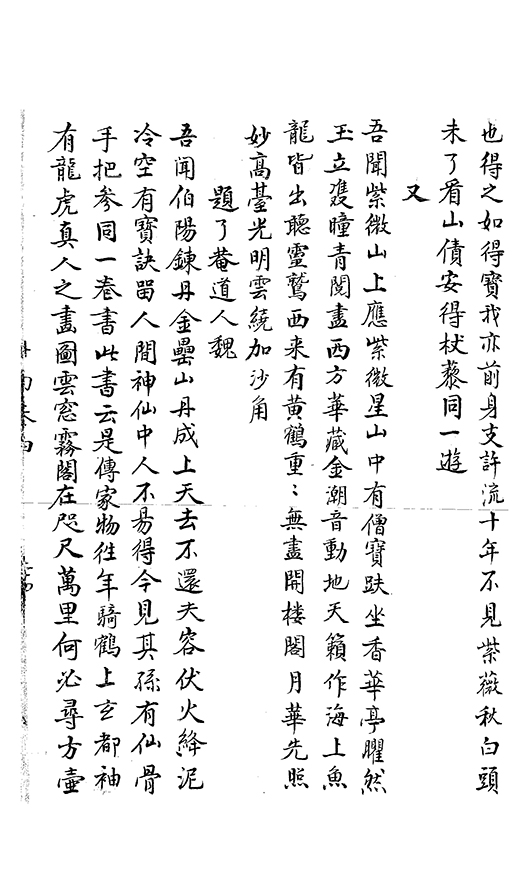 也得之如得寳我亦前身支許流十年不見紫薇秋白頭
未了看山債安得杖藜同一遊
又
吾聞紫微山上應紫微星山中有僧寳趺坐香華亭臞然
玉立䨇瞳青閱盡西方華藏金潮音動地天籟作海上魚
龍皆出聽靈鷲西来有黄鶴重〻無盡開楼閣月華先照
妙髙䑓光明雲繞加沙角
題了菴道人魏
吾聞伯陽鍊丹金罍山丹成上天去不還夫容伏火絳泥
冷空有寳訣留人間神仙中人不易得今見其孫有仙骨
手把參同一卷書此書云是傳家物徃年騎鶴上玄都袖
有龍虎真人之畫圖雲窓霧閣在咫尺萬里何必尋方壷